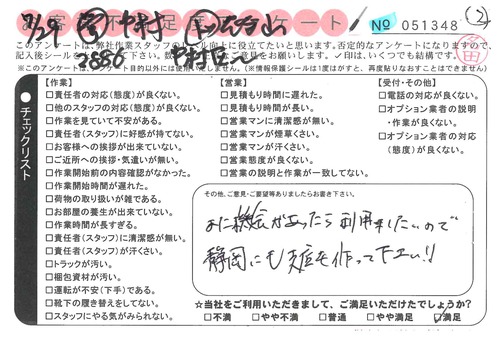 お客様不満足度アンケート
№ 051348
②
このアンケートは、弊社作業スタッフのレベル向上に役立てたいと思います。否定的なアンケートになりますので、
※このアンケートは、アンケート目的以外には使用いたしません。(※情報保護シールは1度はがすと、再度貼りなおすことはできません)
チェックリスト
【作業】
□責任者の対応(態度)が良くない。
□他のスタッフの対応(態度)が良くない。
□作業を見ていて不安がある。
□責任者(スタッフ)に好感が持てない。
□お客様への挨拶が出来ていない。
□ご近所への挨拶・気遣いが無い。
□作業開始前の内容確認がなかった。
□作業開始時間が遅れた。
□荷物の取り扱いが雑である。
□お部屋の養生が出来ていない。
□作業時間が長すぎる。
□責任者(スタッフ)に清潔感が無い。
□責任者(スタッフ)が汗くさい。
□トラックが汚い。
□梱包資材が汚い。
□運転が不安(下手)である。
□靴下の履き替えをしてない。
□スタッフにやる気がみられない。
【営業】
□見積もり時間に遅れた。
□見積もり時間が長い。
□営業マンに清潔感が無い。
□営業マンが煙草くさい。
□営業マンが汗くさい。
□営業態度が良くない。
□営業の説明と作業が一致してない。
【受付・その他】
□電話の対応が良くない。
□オプション業者の説明
・作業が良くない。
□オプション業者の対応
(態度)が良くない。
その他、ご意見・ご要望等ありましたらお書き下さい。
また機会があったら利用をしたいので
静岡にも支店を作って下さい!!
☆当社をご利用いただきまして、ご満足いただけたでしょうか?
□不満 □やや不満 □普通 □やや満足 ☑満足